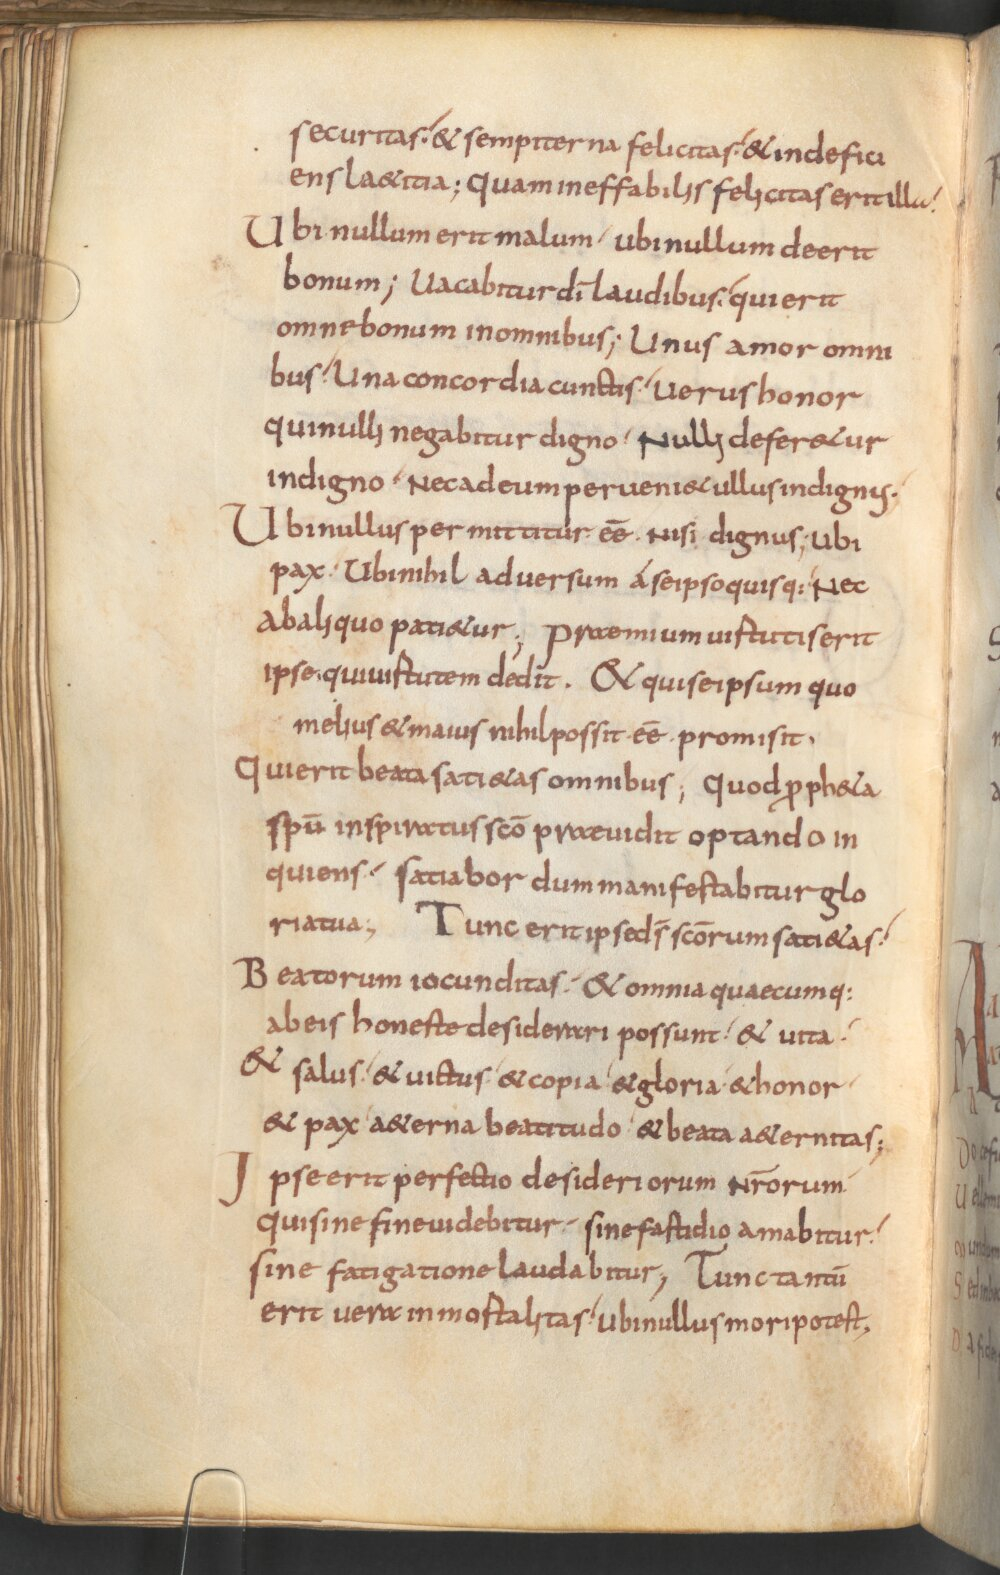 securitas. & sempiterna felicitas. & indefici
ens la&itia; Quam ineffabilis felicitas erit illa.
Ubi nullum erit malum. ubi nullum deerit
bonum; Uacabitur dī laudibus. qui erit
omne bonum in omnibus; Unus amor omni
bus. Una concordia cunctis. Uerus honor
qui nulli negabitur digno. Nulli defer&ur
indigno. Nec ad eum perueni& ullus indignis.
Ubi nullus permittitur eē. nisi dignus; Ubi
pax. Ubi nihil aduersum á se ipso quisq: Nec
ab aliquo pati&ur; Praemium uirtutis erit
ipse. qui uirtutem dedit. & qui se ipsum quo
melius & maius nihil possit eē. promisit.
Qui erit beata sati&as omnibus; Quod ꝓph&a
spū inspiratus scō praeuidit optando in
quiens. satiabor dum manifestabitur glo
ria tua; Tunc erit ipse ds̄ scōrum sati&as.
Beatorum iocunditas. & omnia quaecumq:
ab eis honeste desiderari possunt. & uita.
& salus. & uictus. & copia. & gloria. & honor
& pax. a&erna beatitudo. & beata a&ernitas;
Ipse erit perfectio desideriorum nr̄orum
qui sine fine uidebitur. sine fastidio amabitur.
sine fatigatione laudabitur; Tunc tantū
erit uera inmortalitas. Ubi nullus mori potest;